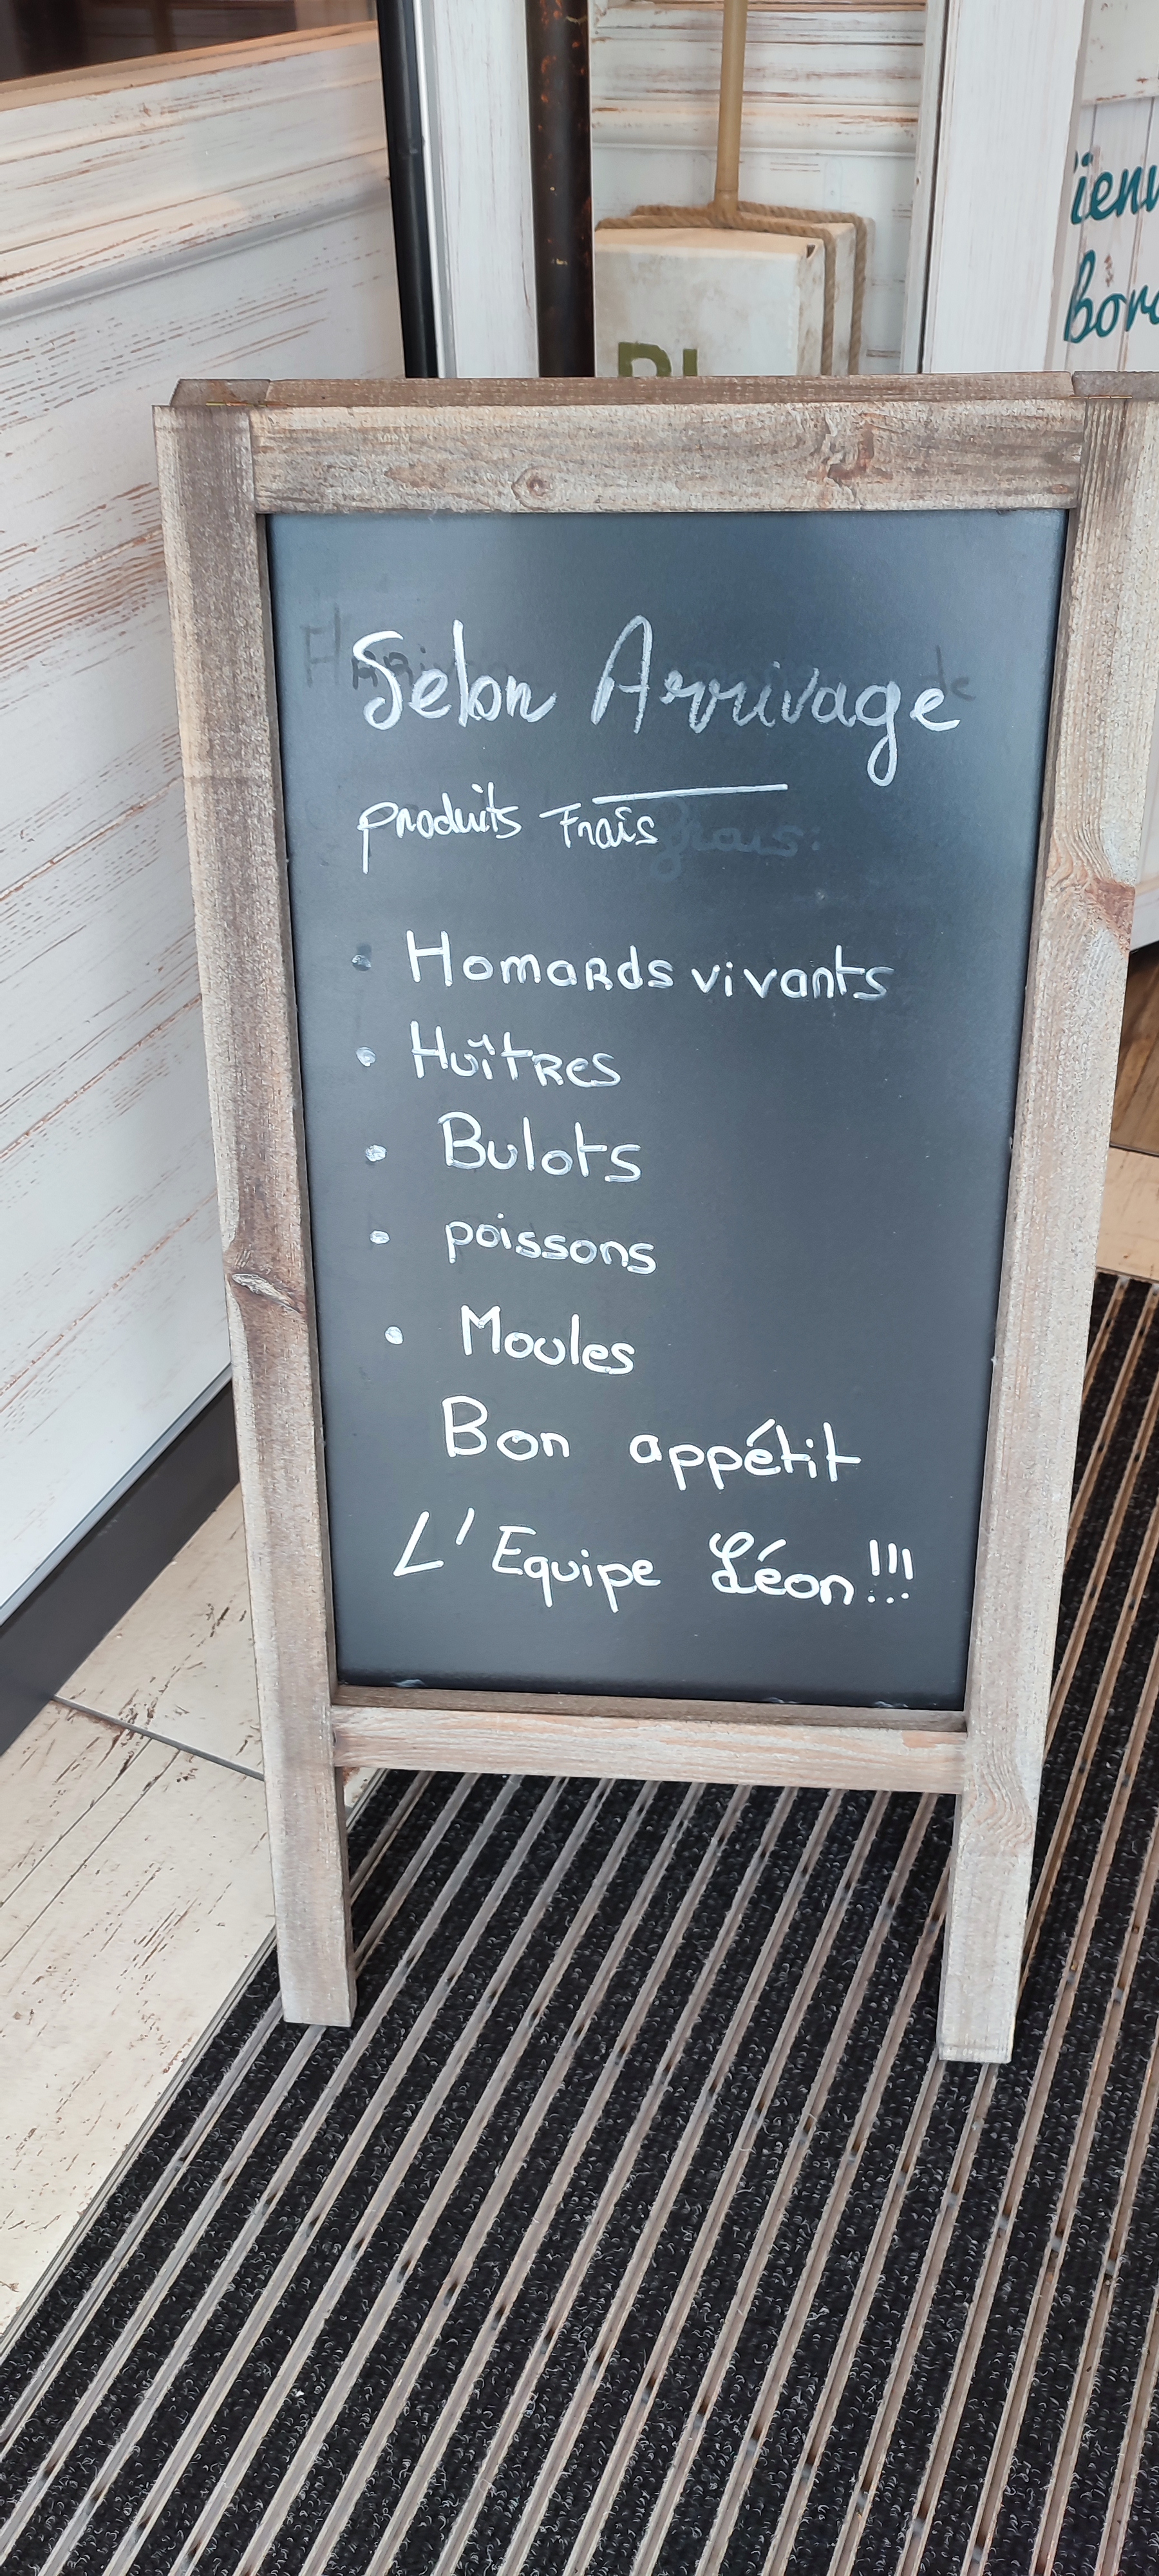 Selon Arrivage
produits Frais
• Homards vivants
• Huîtres
• Bulots
• poissons
• Moules
Bon appétit
L'Equipe Léon!!!